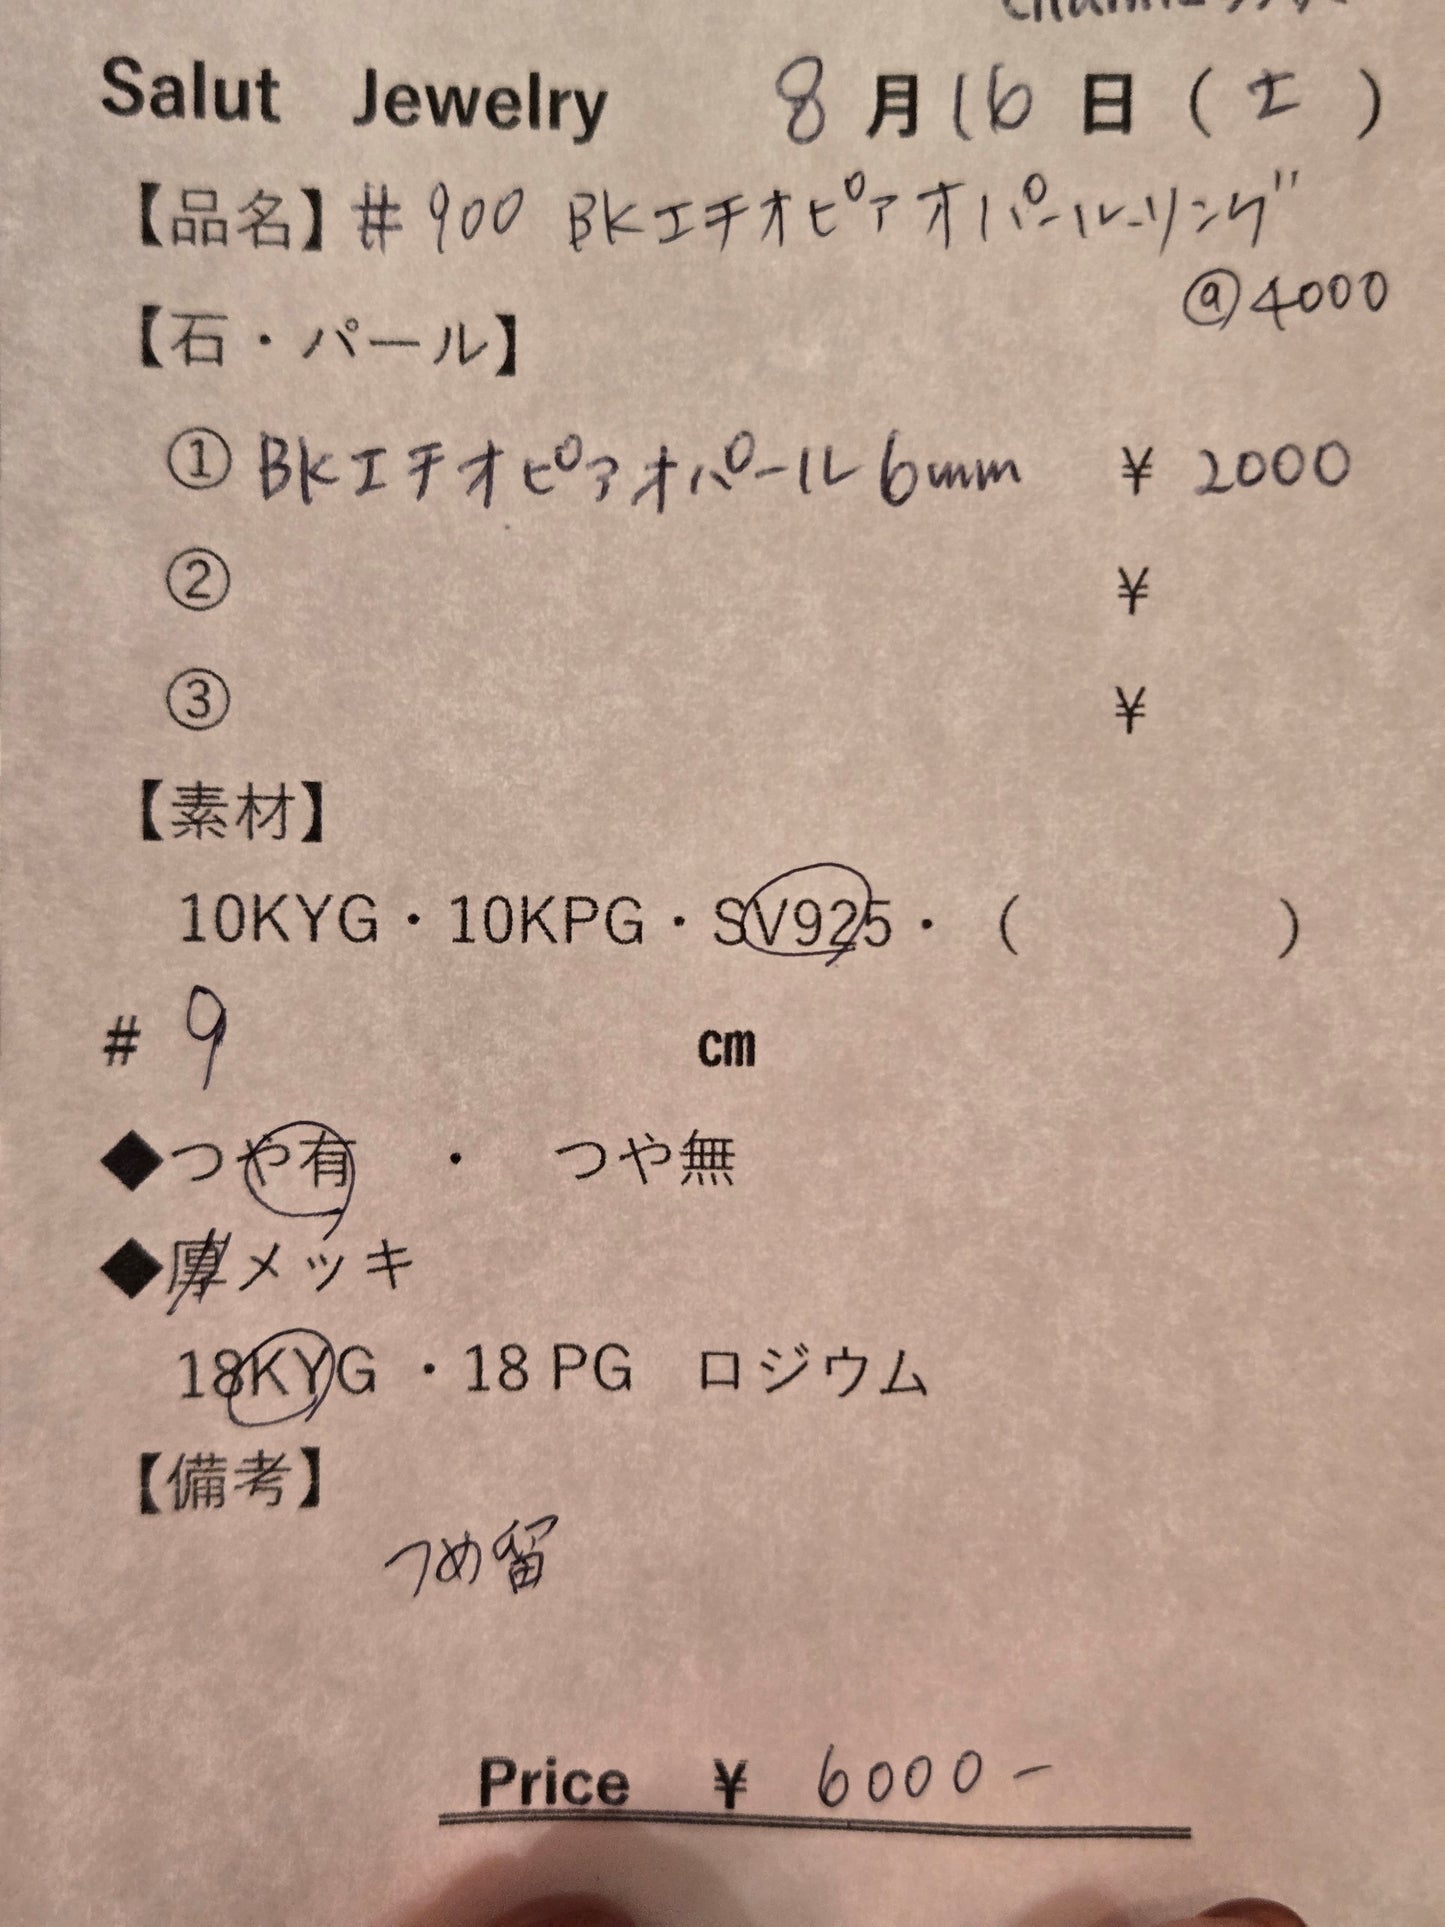 Salut Jewelry 8月16日(土)
【品名】#900 BKエチオピアオパールリング
@4000
【石・パール】
① BKエチオピアオパール6mm ¥2000
② ¥
③ ¥
【素材】
10KYG・10KPG・SV925・( )
# 9 cm
◆つや有 ・ つや無
◆厚メッキ
18KYG ・18 PG ロジウム
【備考】
つめ留
Price ¥ 6000-